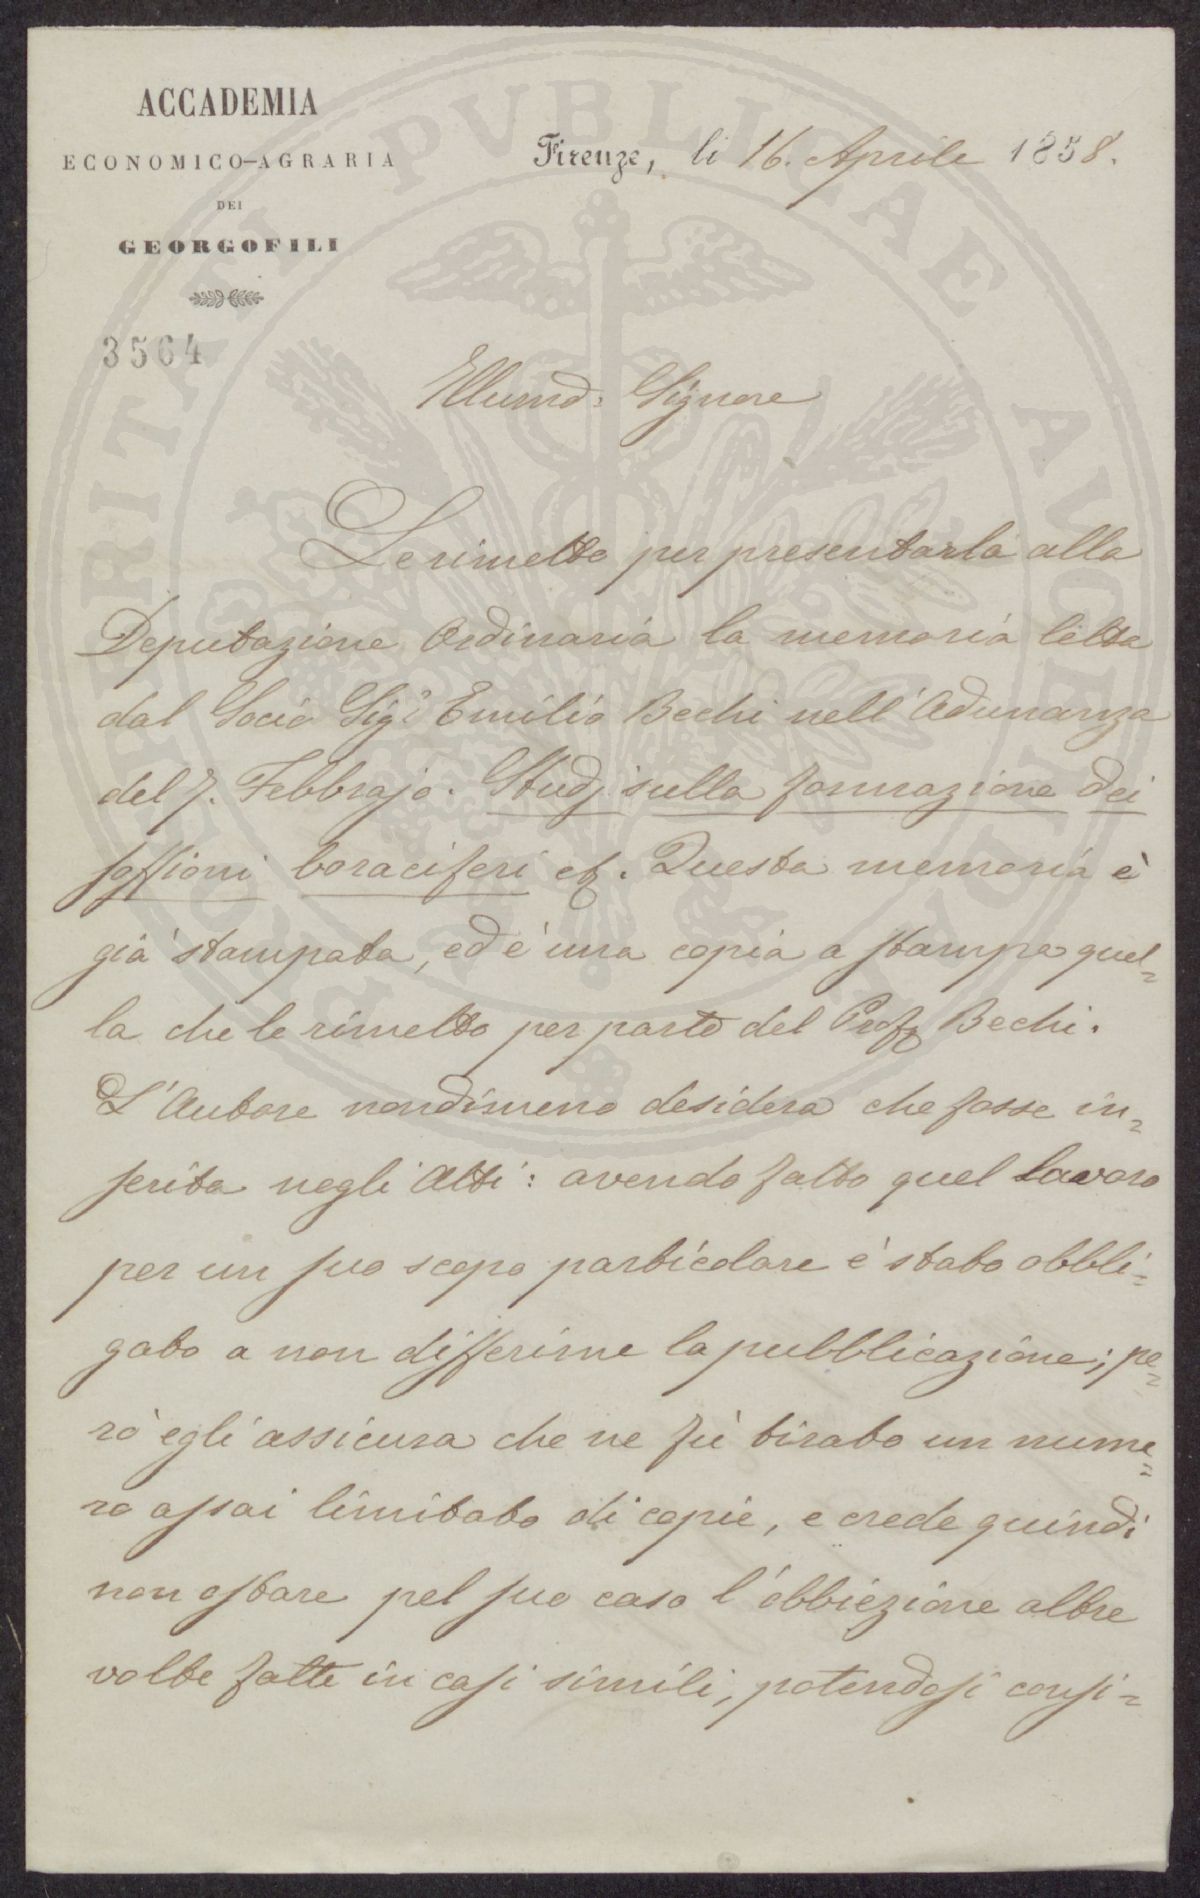 ACCADEMIA
ECONOMICO-AGRARIA
DEI
GEORGOFILI
3564
Firenze, li 16. Aprile 1858.
Illumo: Signore
Le rimetto per presentarla alla
Deputazione Ordinaria la memoria letta
dal Socio Sigr Emilio Bechi nell'Adunanza
del 7. Febbrajo. Studj sulla formazione dei
soffioni boraciferi ec. Questa memoria è
già stampata, ed è una copia a stampa quel=
la che le rimetto per parte del Prof. Bechi.
L'Autore nondimeno desidera che fosse in=
serita negli Atti: avendo fatto quel lavoro
per un suo scopo particolare è stato obbli=
gato a non differirne la pubblicazione; pe=
rò egli assicura che ne fù tirato un nume=
ro assai limitato di copie, e crede quindi
non ostare pel suo caso l'obbiezione altre
volte fatte in casi simili, potendosi consi=
PROSPERITATI PVBLICAE AVGENDAE